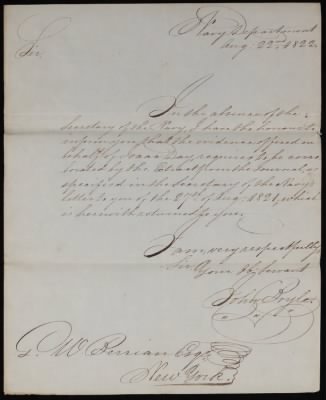 Navy Department
Aug. 22nd 1822.
Sir,
In the absence of the
Secretary of the Navy, I have the honour to
inform you, that the evidence offered in
behalf of Isaac Day, requires to be corro
borated by the Extract from the Journal, as
specified in the Secretary of the Navy's
letter to you of the 27th of Aug. 1821, which
is herewith returned to you.
I am, very respectfully
Sir,
Your Ob. Servant
John Boyle
G. W Berrian Esqr.
New York.